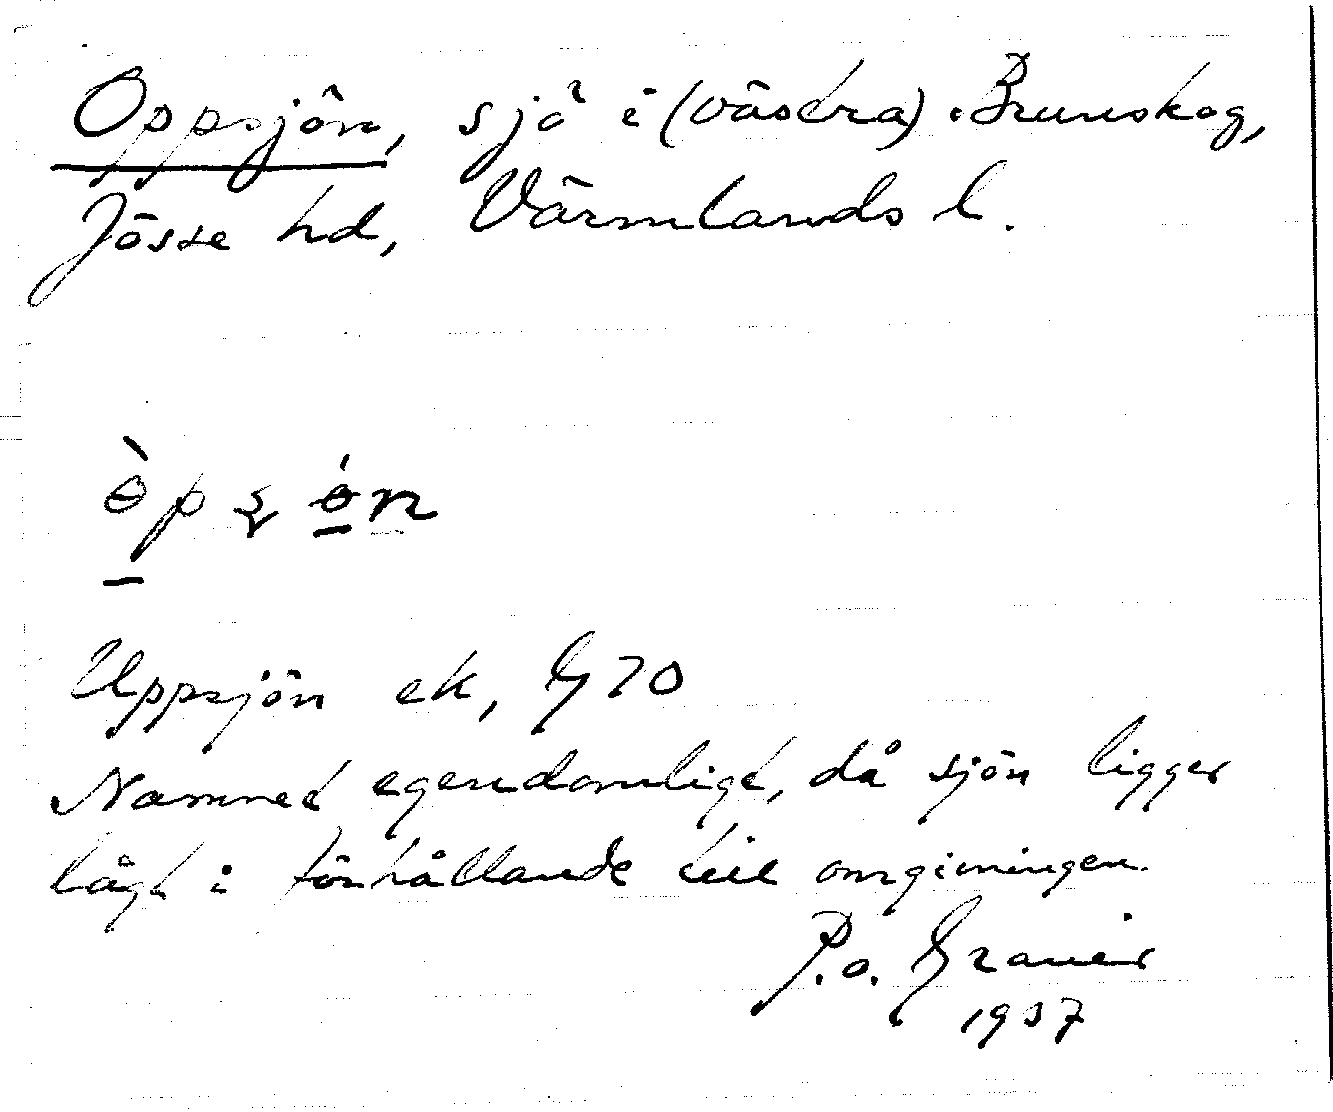 Oppsjön, sjö i (västra) Brunskog,
Jösse hd, Värmlands l.
Uppsjön ek, G 70
Namnet egendomligt, då sjön ligger
lågt i förhållande till omgivningen.
P.o. Granér
1937